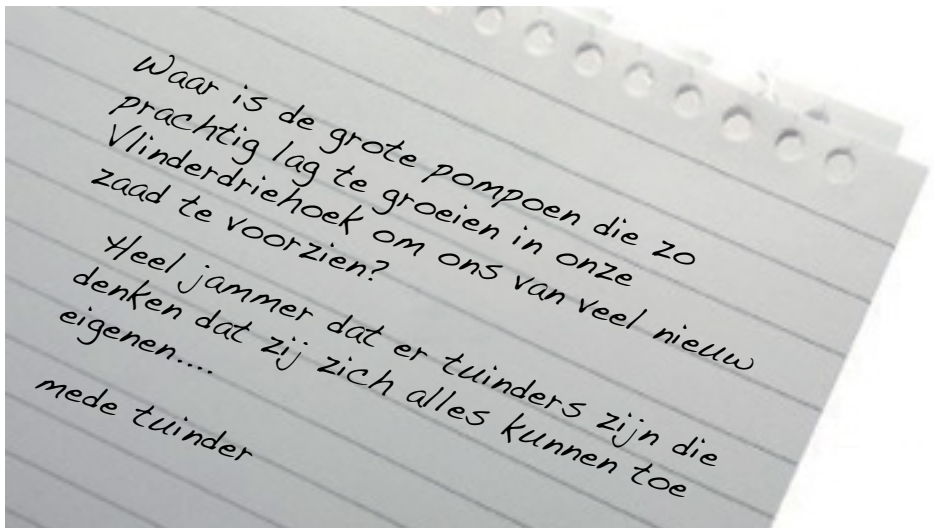 Waar is de grote pompoen die zo
prachtig lag te groeien in onze
Vlinderdriehoek om ons van veel nieuw
zaad te voorzien?
Heel jammer dat er tuinders zijn die
denken dat zij zich alles kunnen toe
eigenen....
mede tuinder